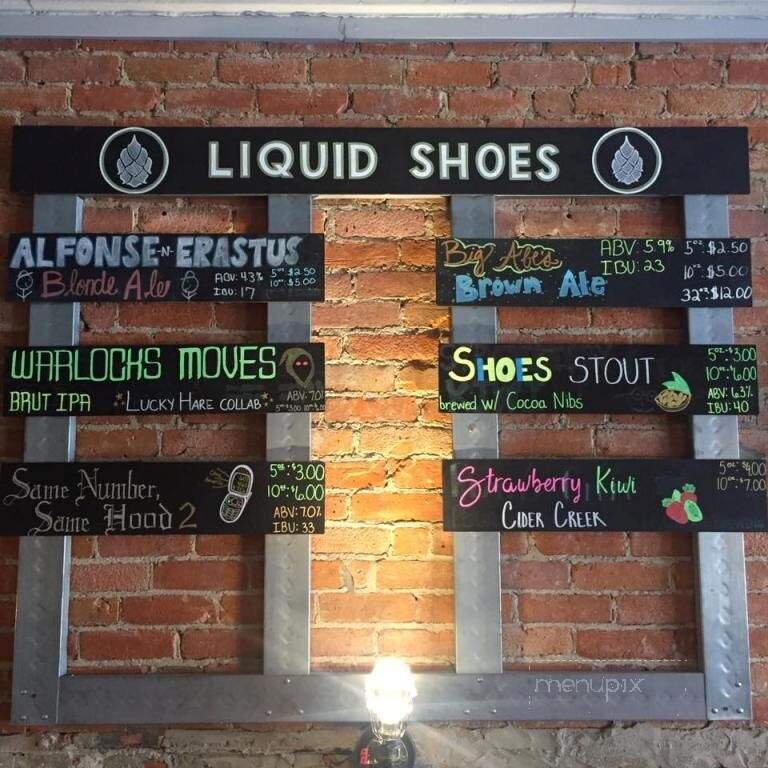 LIQUID SHOES
ALFONSE-N-ERASTUS
Blonde Ale
ABV: 4.3%
IBU: 17
5oz: $2.50
10oz: $5.00
WARLOCKS MOVES
BRUT IPA *LUCKY HARE COLLAB*
ABV: 7.0%
5oz: $3.00 10oz: $6.00
Same Number,
Same Hood 2
5oz: $3.00
10oz: $6.00
ABV: 7.0%
IBU: 33
Big Abe's
Brown Ale
ABV: 5.9%
IBU: 23
5oz: $2.50
10oz: $5.00
32oz: $12.00
SHOES STOUT
brewed w/ Cocoa Nibs
5oz: $3.00
10oz: $6.00
ABV: 6.3%
IBU: 40
Strawberry Kiwi
CIDER CREEK
5oz: $4.00
10oz: $7.00
menupix